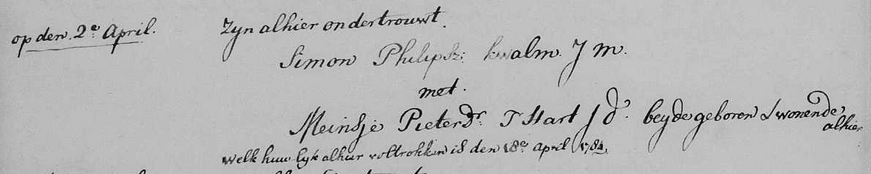 op den 2e April. Zyn alhier ondertrouwt.
Simon Philipsz: kwalm J m.
met.
Meinsje Pieterdr. T Hart J d. beyde geboren & wonende
alhier
welk huwlyk alhier voltrokken is den 18e April 1784.